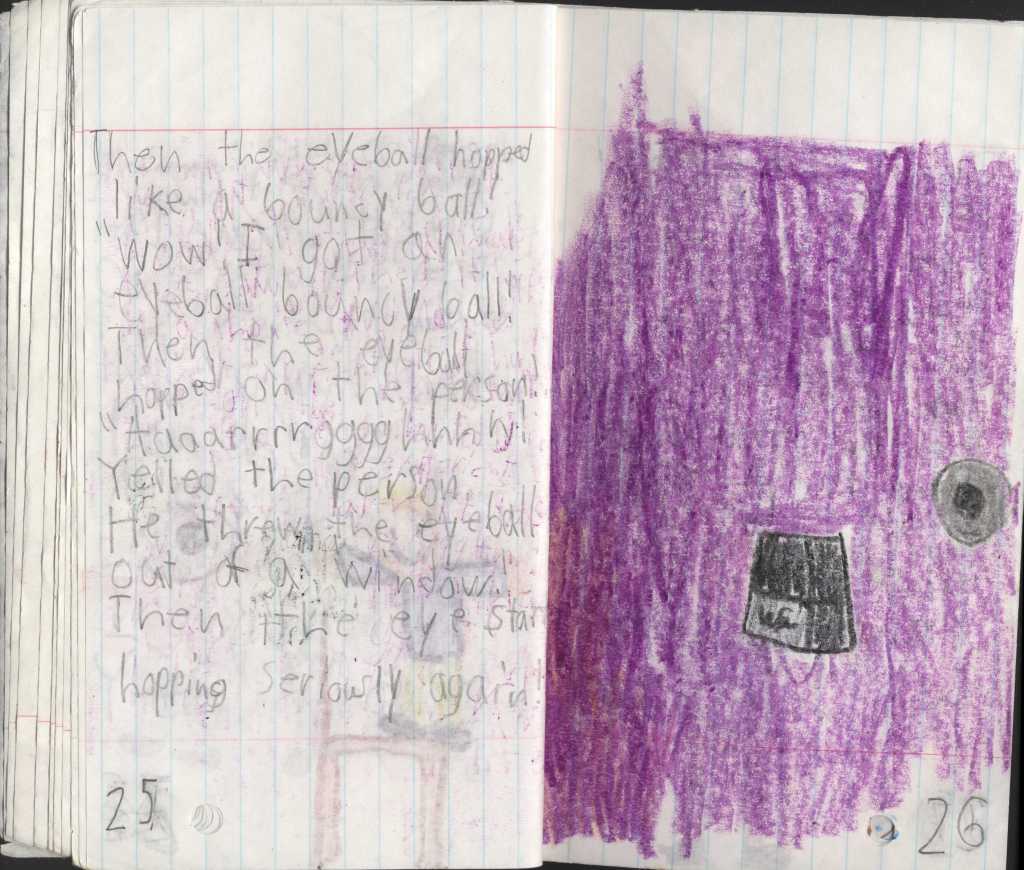 Then the eyeball hopped
like a bouncy ball!
"wow" I got an
eyeball bouncy ball!
Then the eyeball
hopped on the person!
"Aaaarrrrgggghhhh!
Yelled the person.
He threw the eyeball
out of a window!
Then the eye star
hopping seriously again!
25
26